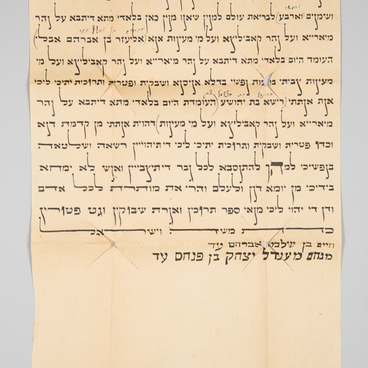 ושמונים וארבע לבריאת עולם למנין שאנו מנין כאן בלאדי מתא דיתבא על נהר
מיארייא ועל נהר קאבילניא ועל מי מעינות אנא אליעזר בן אברהם
העומד היום בלאדי מתא דיתבא על נהר מיארייא ועל נהר קאבילניא ועל מי
מעינות צביתי ברעות נפשי בדלא אניסנא ושבקית ופטרית ותרוכית יתיכי ליכי
אנת אנתתי רישא בת יהושע העומדת היום בלאדי מתא דיתבא על נהר
מיארייא ועל נהר קאבילניא ועל מי מעינות דהוית אנתתי מן קדמת דנא
וכדו פטרית ושבקית ותרוכית יתיכי ליכי דיתיהוייין רשאה ושלטאה
בנפשיכי למהך להתנסבא לכל גבר דיתיצבייין ואנש לא ימחא
בידיכי מן יומא דנן ולעלם והרי את מותרת לכל אדם
ודן די יהוי ליכי מנאי ספר תרוכין ואגרת שבוקין וגט פטורין
כדת משה וישראל
חיים בן שלמה אברהם עד
מנחם מענדל יצחק בן פנחם עד